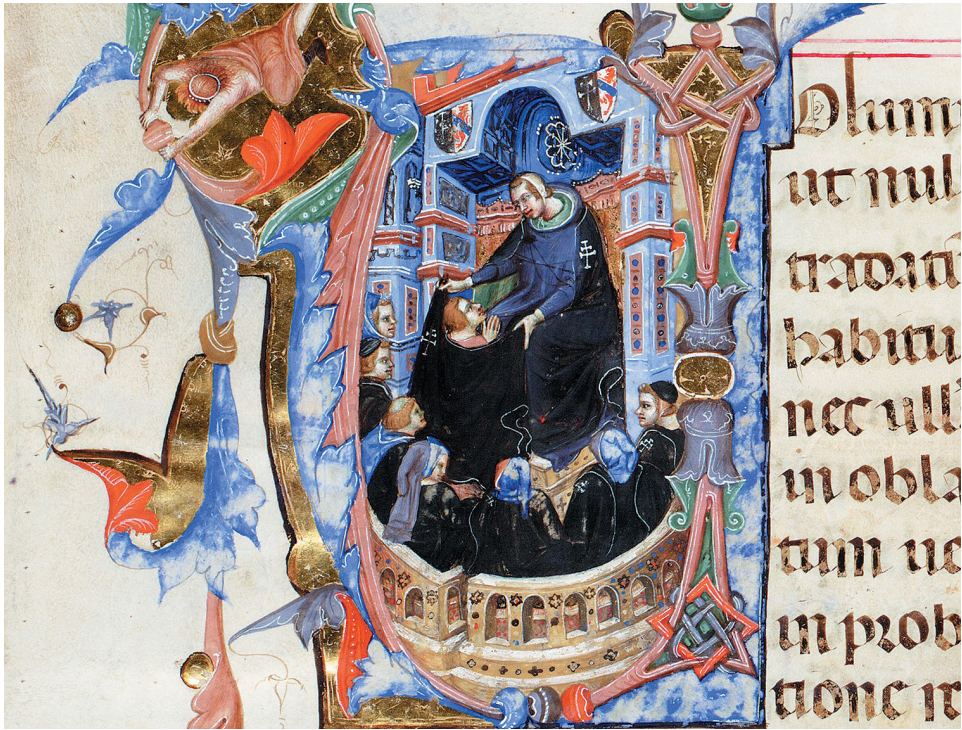 Olum
ut nul
tradatu
habitu
nec ull
in obla
tum ue
in prob
tione re